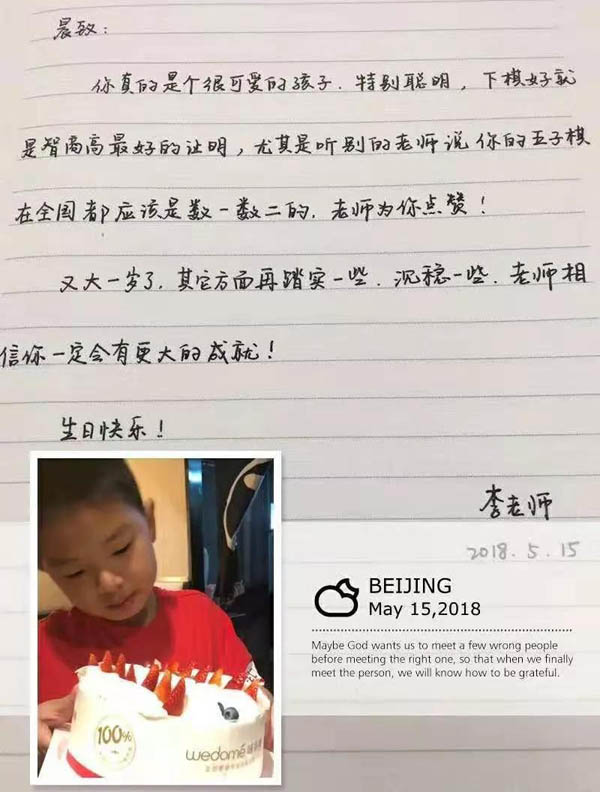 晨致：
你真的是个很可爱的孩子．特别聪明，下棋好就
是智商高最好的证明，尤其是听别的老师说你的五子棋
在全国都应该是数一数二的．老师为你点赞！
又大一岁了．其它方面再踏实一些．沉稳一些．老师相
信你一定会有更大的成就！
生日快乐！
李老师
2018.5.15
BEIJING
May 15,2018
Maybe God wants us to meet a few wrong people
before meeting the right one, so that when we finally
meet the person, we will know how to be grateful.
100%
wedomé